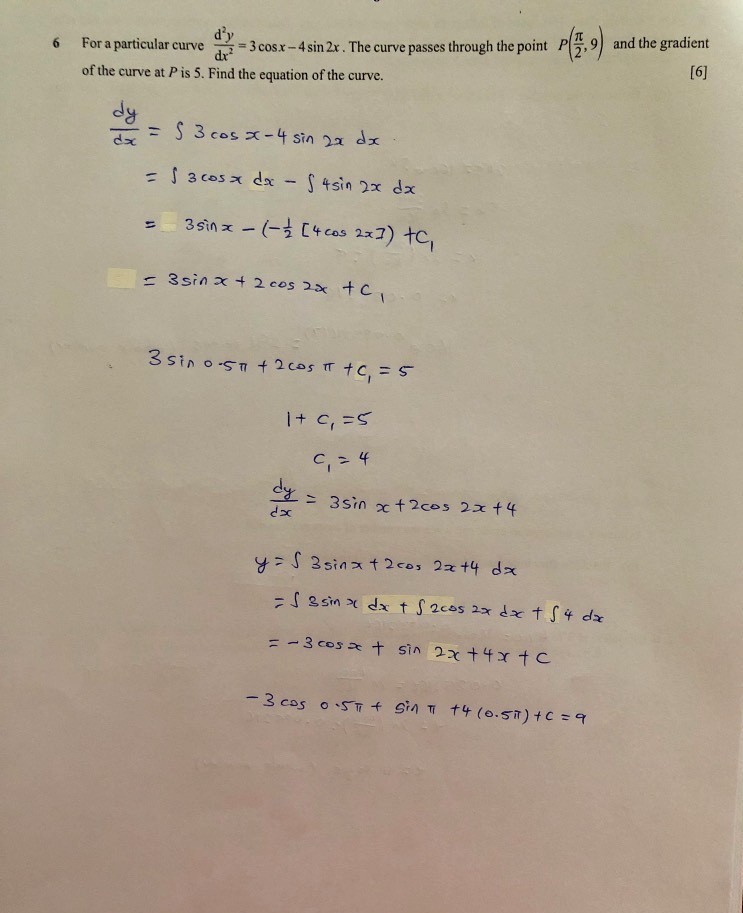 6 For a particular curve d²y/dx² = 3 cos x – 4 sin 2x. The curve passes through the point P(π/2, 9) and the gradient
of the curve at P is 5. Find the equation of the curve. [6]
dy/dx = ∫ 3 cos x – 4 sin 2x dx
= ∫ 3 cos x dx – ∫ 4 sin 2x dx
= 3 sin x – (–½ [4 cos 2x]) + C₁
= 3 sin x + 2 cos 2x + C₁
3 sin 0.5π + 2 cos π + C₁ = 5
1 + C₁ = 5
C₁ = 4
dy/dx = 3 sin x + 2 cos 2x + 4
y = ∫ 3 sin x + 2 cos 2x + 4 dx
= ∫ 3 sin x dx + ∫ 2 cos 2x dx + ∫ 4 dx
= – 3 cos x + sin 2x + 4x + C
– 3 cos 0.5π + sin π + 4 (0.5π) + C = 9